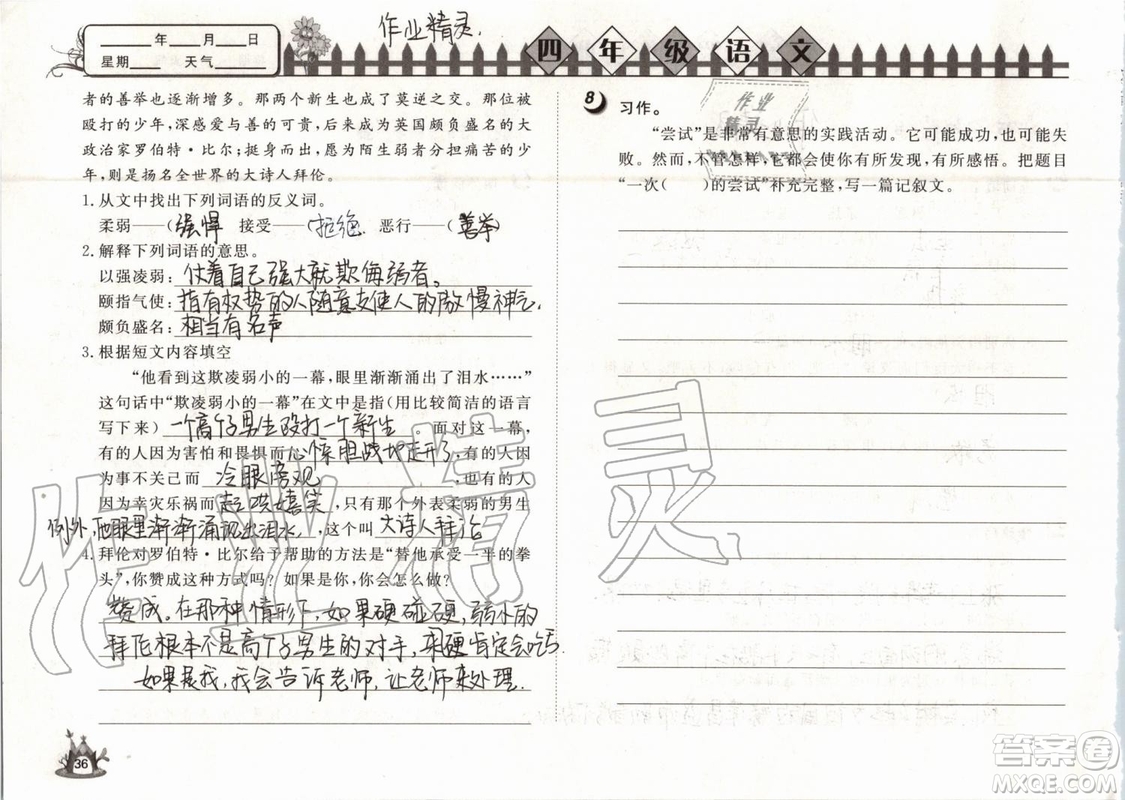 ____年____月____日
星期____ 天气____
作业精灵.
四年级语文
者的善举也逐渐增多。那两个新生也成了莫逆之交。那位被
殴打的少年,深感爱与善的可贵,后来成为英国颇负盛名的大
政治家罗伯特·比尔;挺身而出,愿为陌生弱者分担痛苦的少
年,则是扬名全世界的大诗人拜伦。
1. 从文中找出下列词语的反义词。
柔弱——(强悍 接受——(拒绝 恶行——(善举)
2. 解释下列词语的意思。
以强凌弱:仗着自己强大就欺侮弱者。
颐指气使:指有权势的人随意支使人的傲慢神气.
颇负盛名:相当有名声
3. 根据短文内容填空
“他看到这欺凌弱小的一幕,眼里渐渐涌出了泪水……”
这句话中“欺凌弱小的一幕”在文中是指(用比较简洁的语言
写下来)一个高个子男生殴打一个新生 面对这一幕,
有的人因为害怕和畏惧而心惊胆战地走开了,有的人因
为事不关己而 冷眼旁观 ,也有的人
因为幸灾乐祸而起哄嬉笑,只有那个外表柔弱的男生
例外,他眼里渐渐涌出泪水,这个叫大诗人拜伦
4. 拜伦对罗伯特·比尔给予帮助的方法是“替他承受一半的拳
头”,你赞成这种方式吗?如果是你,你会怎么做?
赞成。在那种情形下,如果硬碰硬,弱小的
拜伦根本不是高个子男生的对手,来硬肯定会吃亏.
如果是我,我会告诉老师,让老师来处理.
36
8 习作。
作业
精灵
“尝试”是非常有意思的实践活动。它可能成功,也可能失
败。然而,不管怎样,它都会使你有所发现,有所感悟。把题目
“一次( )的尝试”补充完整,写一篇记叙文。
作业精灵
答案卷
MXQE.COM